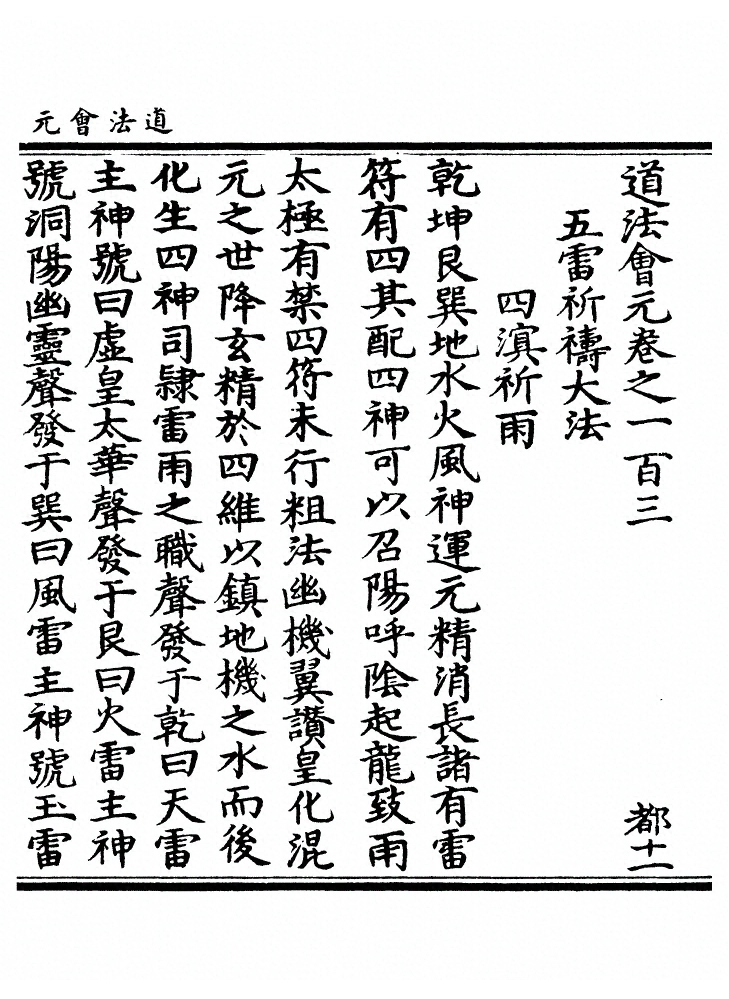 道法會元
道法會元卷之一百三 都十一
五雷祈禱大法
四溟祈雨
乾坤艮巽地水火風神運元精消長諸有雷
符有四其配四神可以召陽呼陰起龍致雨
太極有禁四符未行粗法幽機翼讚皇化混
元之世降玄精於四維以鎮地機之水而後
化生四神司隸雷雨之職聲發于乾曰天雷
主神號曰虛皇太華聲發于艮曰火雷主神
號洞陽幽靈聲發于巽曰風雷主神號玉雷